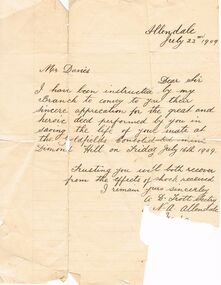 Allendale
July 22nd 1909
Mr Davies
Dear sir
I have been instructed by my
Branch to convey to you their
sincere appreciation for the great and
heroic deed performed by you in
saving the life of your mate at
the Goldfields Consolidated mine
Simons Hill on Friday July 16th 1909.
Trusting you will both recover
from the effects of shock received
I remain yours sincerely
A. D. Trott Secty
Allendale